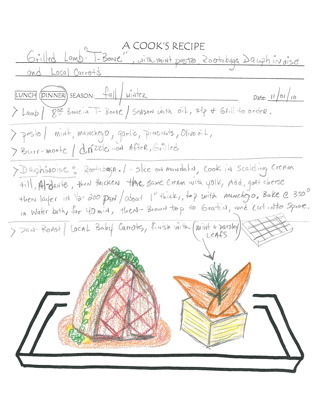 A COOK'S RECIPE
Grilled Lamb "T-Bone", with mint pesto, Rootabaga Dauphinoise
and Local Carrots
LUNCH DINNER SEASON: fall/winter DATE: 11/01/10
> Lamb/ 8oz Bone in T-Bone/ Season with oil, s/p & Grill to order.
> pesto/ mint, manchego, garlic, pinenuts, Olive oil,
> Burr-monte/ drizzle on After, Grilled
> Dauphinoise: Rootabaga/ - slice on mandolin, Cook in Scalding Cream
till, Al-dente, then thicken the same Cream with yolk, Add, goat cheese
then layer in 1/2 200 pan/ about 1" thick, top with manchego, Bake @ 350°
in Water bath, for 40 min, then - Brown top to Gratin, and Cut into Square.
> Pan-Roast/ Local Baby Carrots, finish with (mint & parsley
LEAFS)